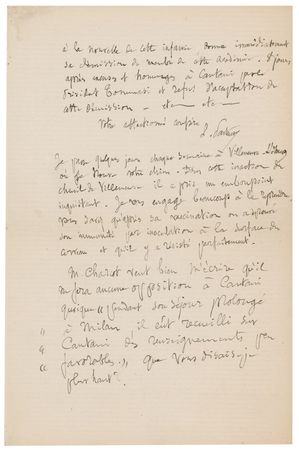 à la nouvelle de cette infamie donna immédiatement
sa démission de membre de cette académie. 8 jours
après excuses et hommages à Cantani par le
Président Tommasi et Refus d'acceptation de
cette démission — etc — etc —
Votre affectionné confrère
L. Pasteur
Je passe quelques jours chaque semaine à Villeneuve-l'Etang
où je trouve votre chien. Dans cette inaction du
chenil de Villeneuve il a pris un embonpoint
inquiétant. Je vous engage beaucoup à le reprendre,
vous savez qu'après sa vaccination on a éprouvé
son immunité par inoculation à la surface du
cerveau et qu'il y a résisté parfaitement.
M. Charcot veut bien m'écrire qu'il
ne fera aucune opposition à Cantani
quoique "(pendant son séjour prolongé
" à Milan, il ait recueilli sur
" Cantani des renseignements peu
" favorables)", que vous disais-je
plus haut?